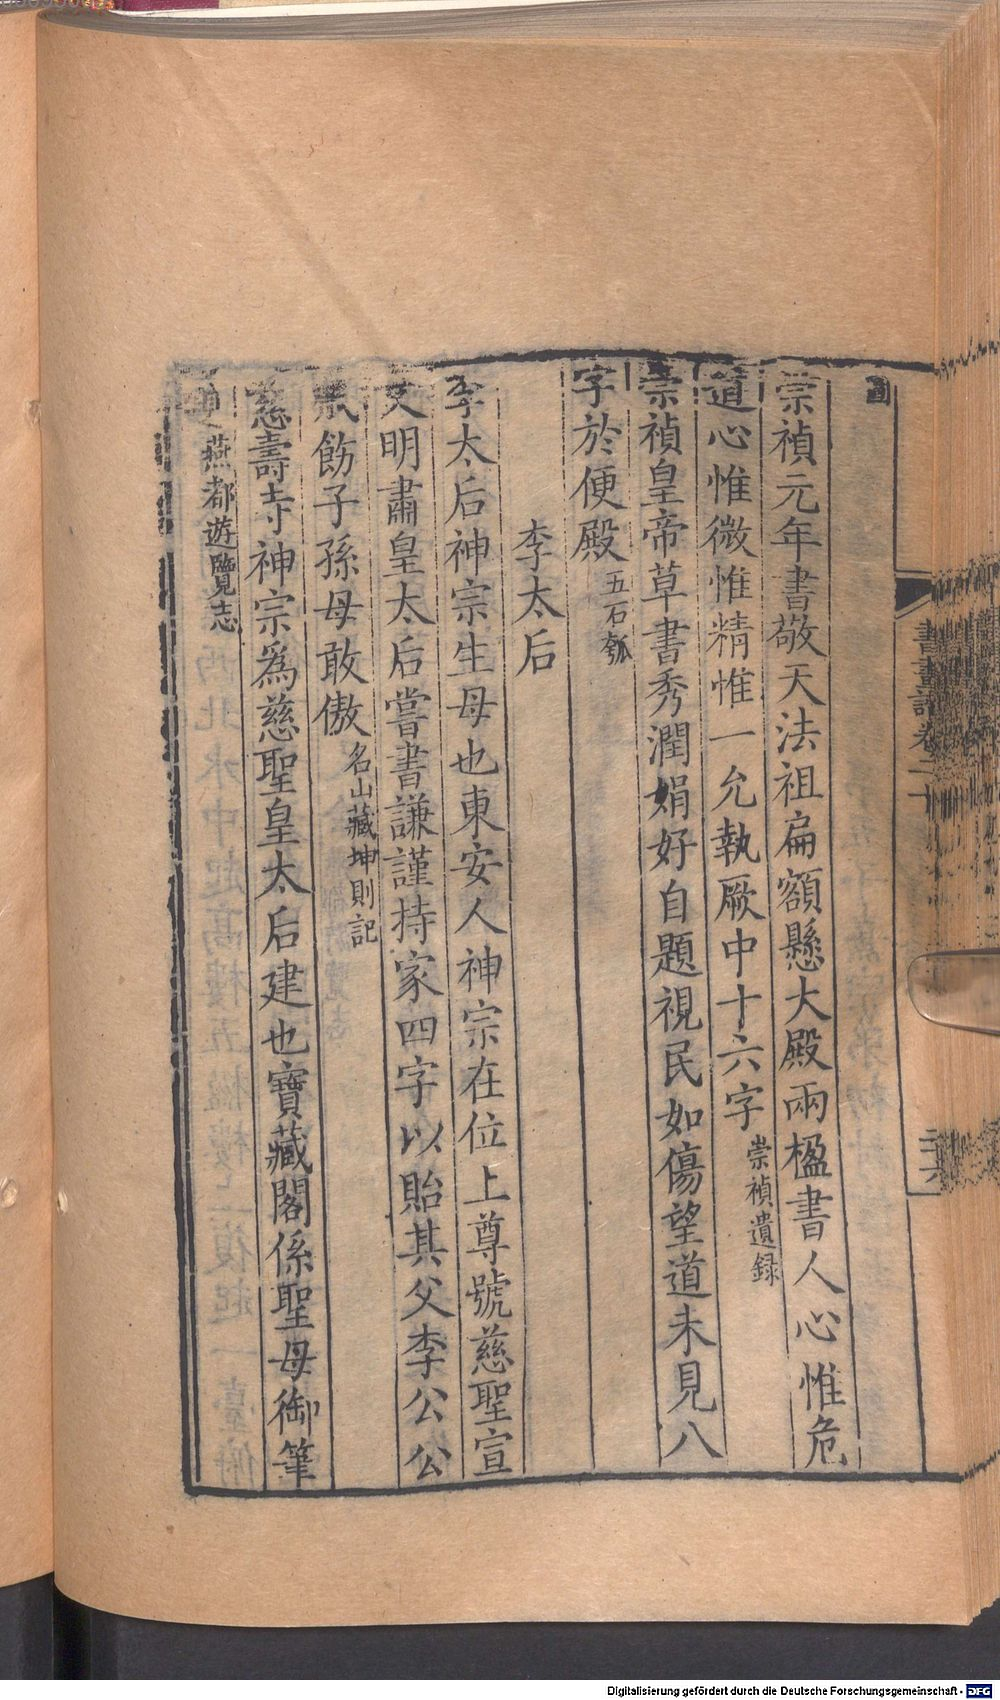 崇禎元年書敬天法祖扁額懸大殿兩楹書人心惟危
道心惟微惟精惟一允執厥中十六字 崇禎遺録
崇禎皇帝草書秀潤娟好自題視民如傷望道未見八
字於便殿 五石瓠
李太后
李太后神宗生母也東安人神宗在位上尊號慈聖宣
文明肅皇太后嘗書謙謹持家四字以貽其父李公公
飭子孫母敢傲 名山藏坤則記
慈壽寺神宗爲慈聖皇太后建也寶藏閣係聖母御筆
燕都遊覽志
書畫譜卷二十
Digitalisierung gefördert durch die Deutsche Forschungsgemeinschaft - DFG